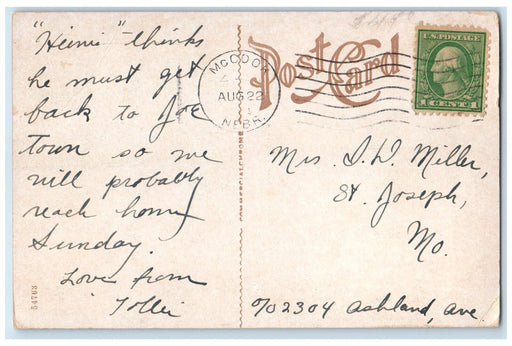 "Heinie" thinks
he must get
back to Joe
town so we
will probably
reach home
Sunday.
Love from
54763
COMMERCIALCHROME
Post Card
McCOOK
AUG 22
NEBR.
U.S. POSTAGE
1 CENT 1
Mrs. D. W. Miller,
St. Joseph,
Mo.
c/o 2304 Ashland, Ave.